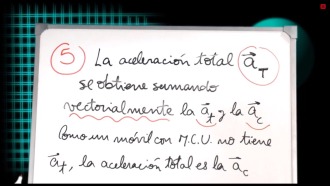 5 La aceleración total a⃗T
se obtiene sumando
vectorialmente la a⃗t y la a⃗c
Como un móvil con M.C.U. no tiene
a⃗t, la aceleración total es la a⃗c